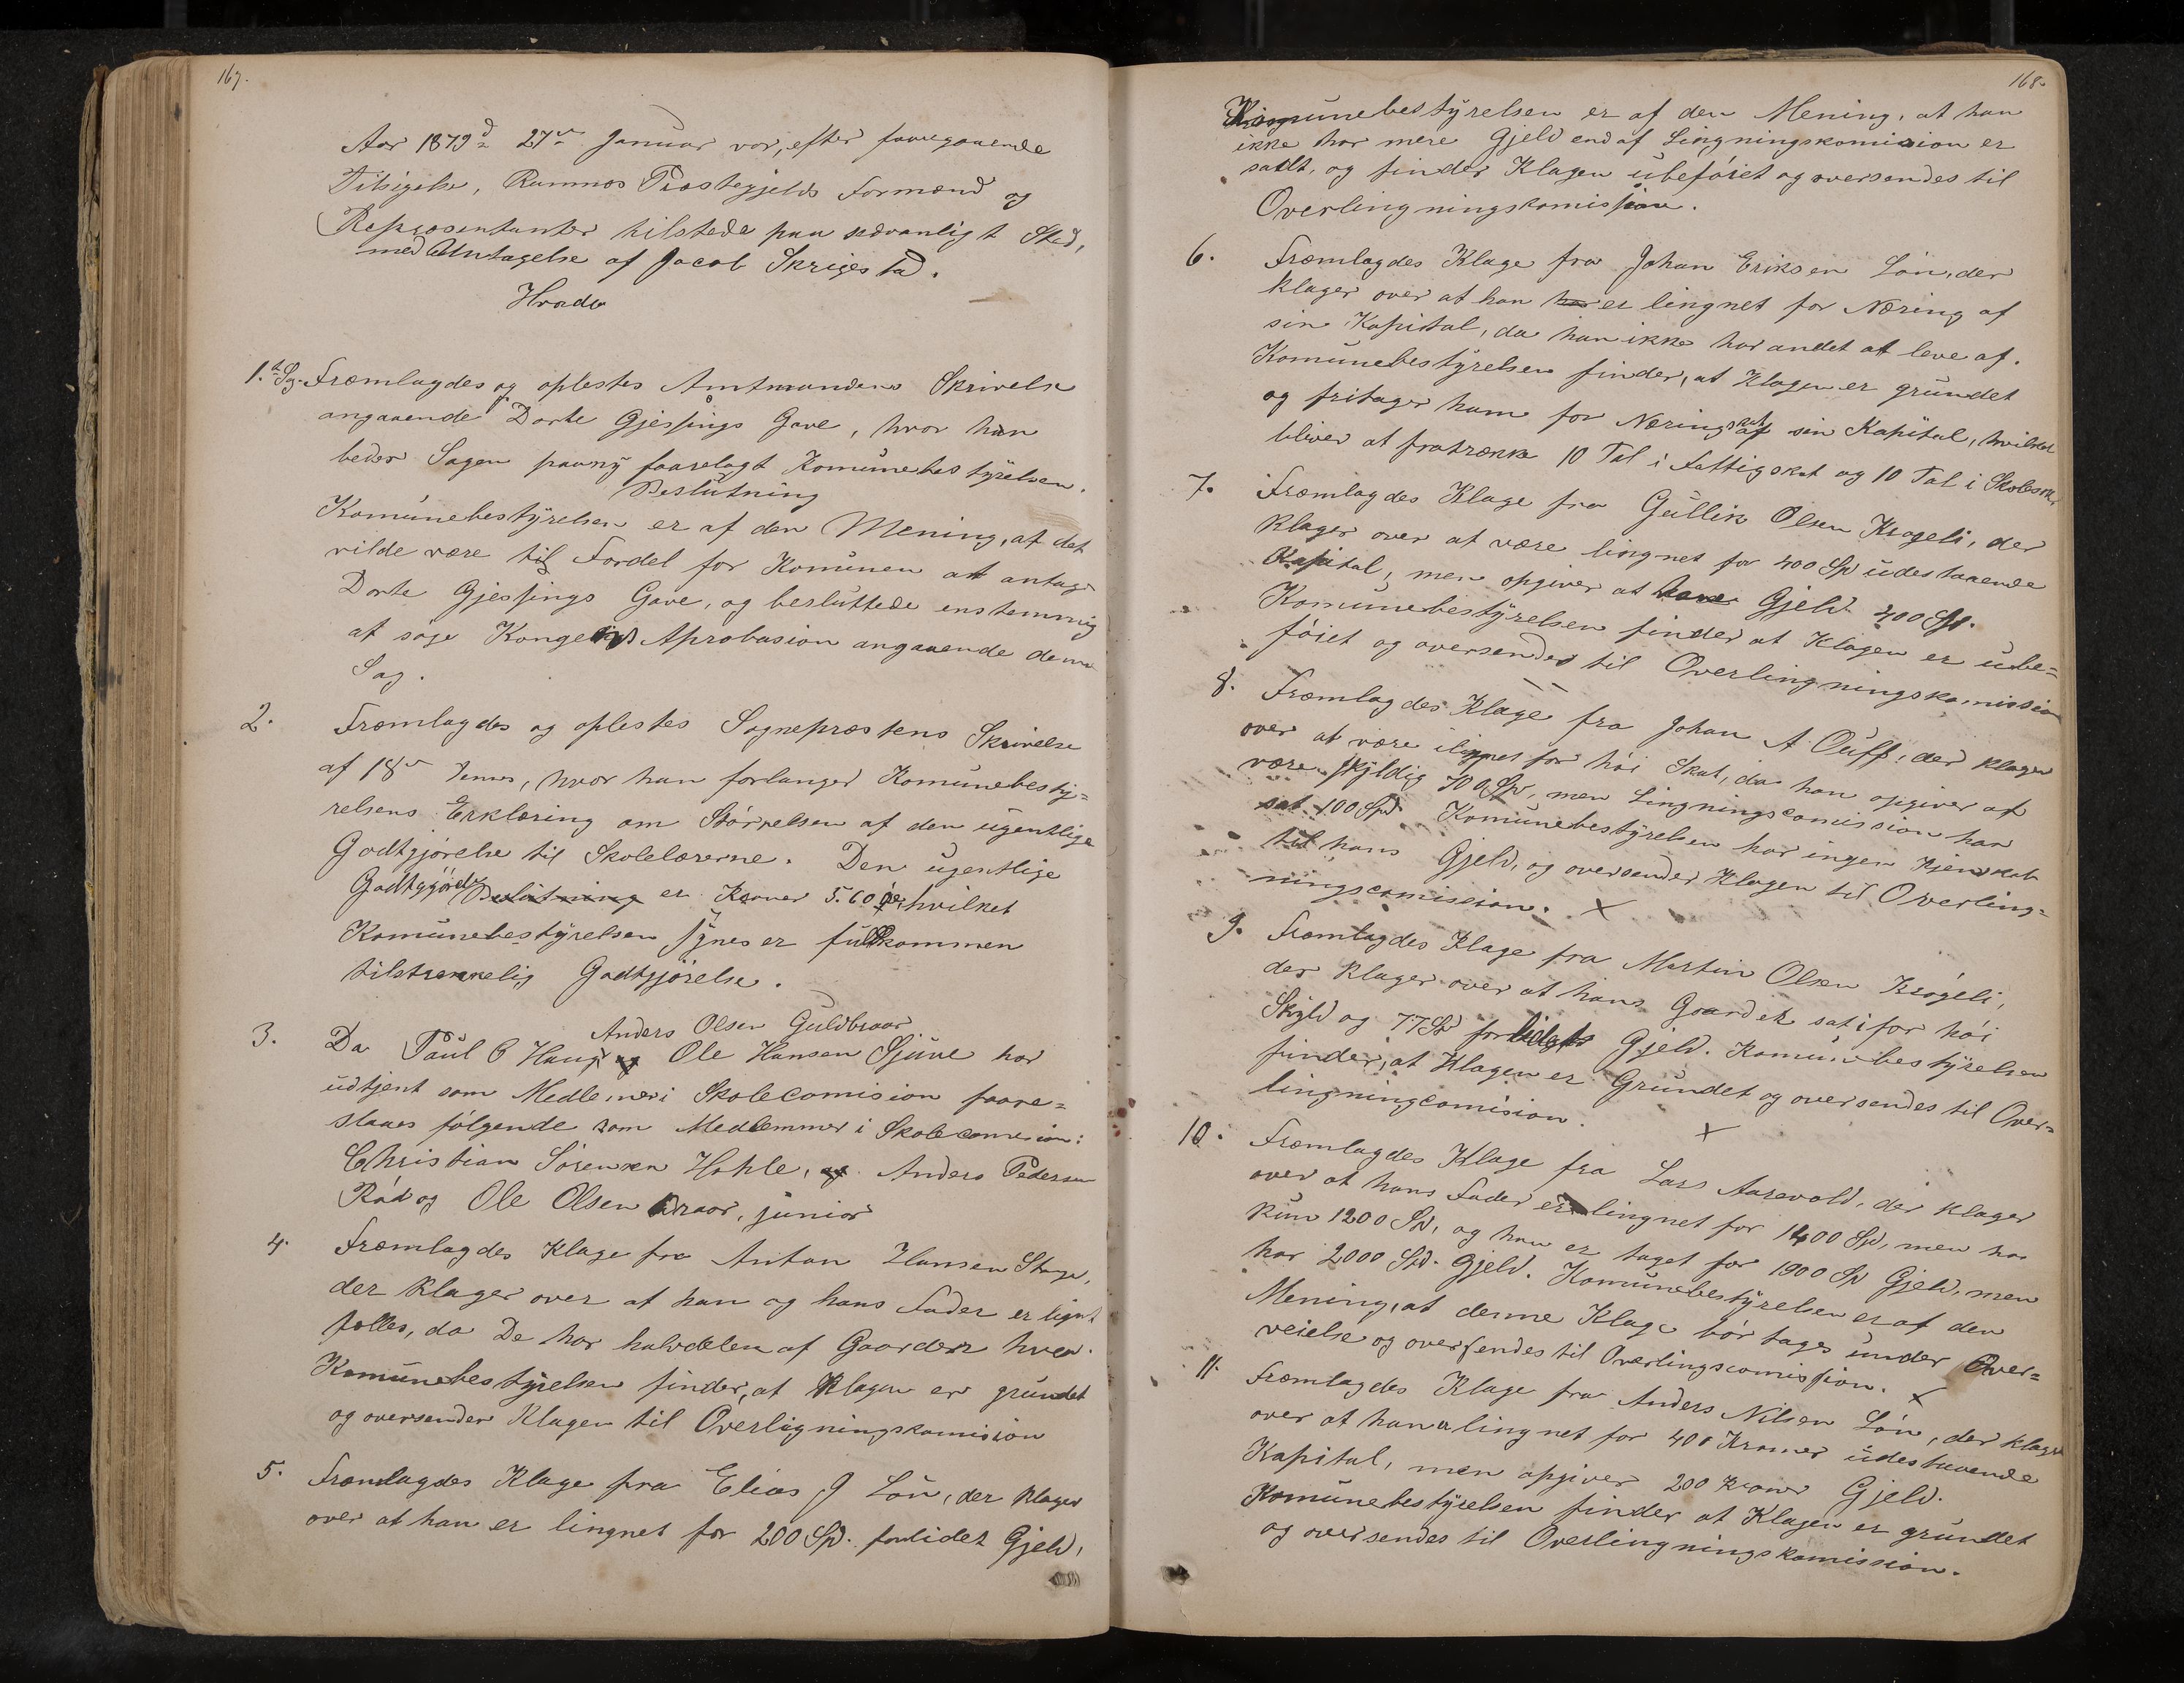 167.
Aar 1879 d 27de Januar var, efter faaregaaende
Tilsigelse, Ramnæs Præstegjelds Formænd og
Repræsentanter tilstede paa sædvanligt Sted,
med Untagelse af Jacob Skrigestad.
Hvada
1.te Sag. Fræmlagdes og oplestes Amtmandens Skrivelse
angaaende Dorte Gjessings Gave, hvor han
beder Sagen paany faarelagt Komunebestyrelsen.
Beslutning
Komunebestyrelsen er af den Mening, at det
vilde være til Fordel for Komunen at antage
Dorte Gjessings Gave, og besluttede enstemmig
at søge Kongelig Aprobasion angaaende denne
Sag.
2. Fræmlagdes og oplestes Sognepræstens Skrivelse
af 18de dennes, hvor han forlanger Komunebesty=
relsens Erklæring om Størrelsen af den ugentlige
Godtgjørelse til Skolelærerne. Den ugentlige
Godtgjørelse Beslutning er Kroner 5.60 øre, hvilket
Komunebestyrelsen synes er fuldkommen
tilstrækkelig Godtgjørelse.
Anders Olsen Guldbraar
3. Da Paul C Haug og Ole Hansen Sjuve har
udtjent som Medlemer i Skolecomision faare=
slaaes følgende som Medlemmer i Skolecomesion:
Christian Sørensen Hotle, og Anders Pedersen
Rød og Ole Olsen Draar, junior
4. Fræmlagdes Klage fra Anton Hansen
der klager over at han og hans Fader er lignt
fælles, da De har halvdelen af Gaarden hver.
Komunebestyrelsen finder, at Klagen er grundet
og oversender Klagen til Overligningskomision
5. Fræmlagdes Klage fra Elias J Løn, der klager
over at han er lingnet for 200 Spd. forlidet Gjeld,
168.
Komunebestyrelsen er af den Mening, at han
ikke har mere Gjeld end af Lingningskomision er
sadt, og finder Klagen ubeføiet og oversendes til
Overlingningskomission.
6. Fræmlagdes Klage fra Johan Eriksen Løn, der
klager over at han har er lingnet for Næring af
sin Kapital, da han ikke har andet at leve af.
Komunebestyrelsen finder, at Klagen er grundet
og fritager ham for Næringskat af sin Kapital, hvilket
bliver at fratrække 10 Tal i Fattigskat og 10 Tal i Skolesk.
7. Fræmlagdes Klage fra Gullik Olsen Krogeli, der
klager over at være lingnet for 400 Spd udestaaende
Kapital, men opgiver at have Gjeld 400 Spd.
Komunebestyrelsen finder at Klagen er ube=
føiet og oversendes til Overlingningskomission
8. Fræmlagdes Klage fra Johan A Ouff, der klager
over at være ilignet for høi Skat, da han opgiver at
være skyldig 700 Spd, men Lingningscomission har
sat 100 Spd. Komunebestyrelsen har ingen Kjenskab
til hans Gjeld, og oversender Klagen til Overling=
ningscomission. X
9. Fræmlagdes Klage fra Martin Olsen Krogeli,
der klager over at hans Gaard er sat i for høi
Skyld og 77 Spd for lidet Gjeld. Komunebestyrelsen
finder, at Klagen er Grundet og oversendes til Over=
lingningcomision. X
10. Fræmlagdes Klage fra Lars Aarevold, der klager
over at hans Fader er lingnet for 1400 Spd, men har
kun 1200 Spd, og han er taget for 1900 Spd Gjeld, men
har 2000 Spd. Gjeld. Komunebestyrelsen er af den
Mening, at denne Klage bør tages under Over=
veielse og oversendes til Overlingscomission. X
11. Fræmlagdes Klage fra Anders Nilsen Løn, der klager
over at han er lingnet for 400 Kroner udestaaende
Kapital, men opgiver 200 Kroner Gjeld.
Komunebestyrelsen finder at Klagen er grundet
og oversendes til Overlingningskomission.